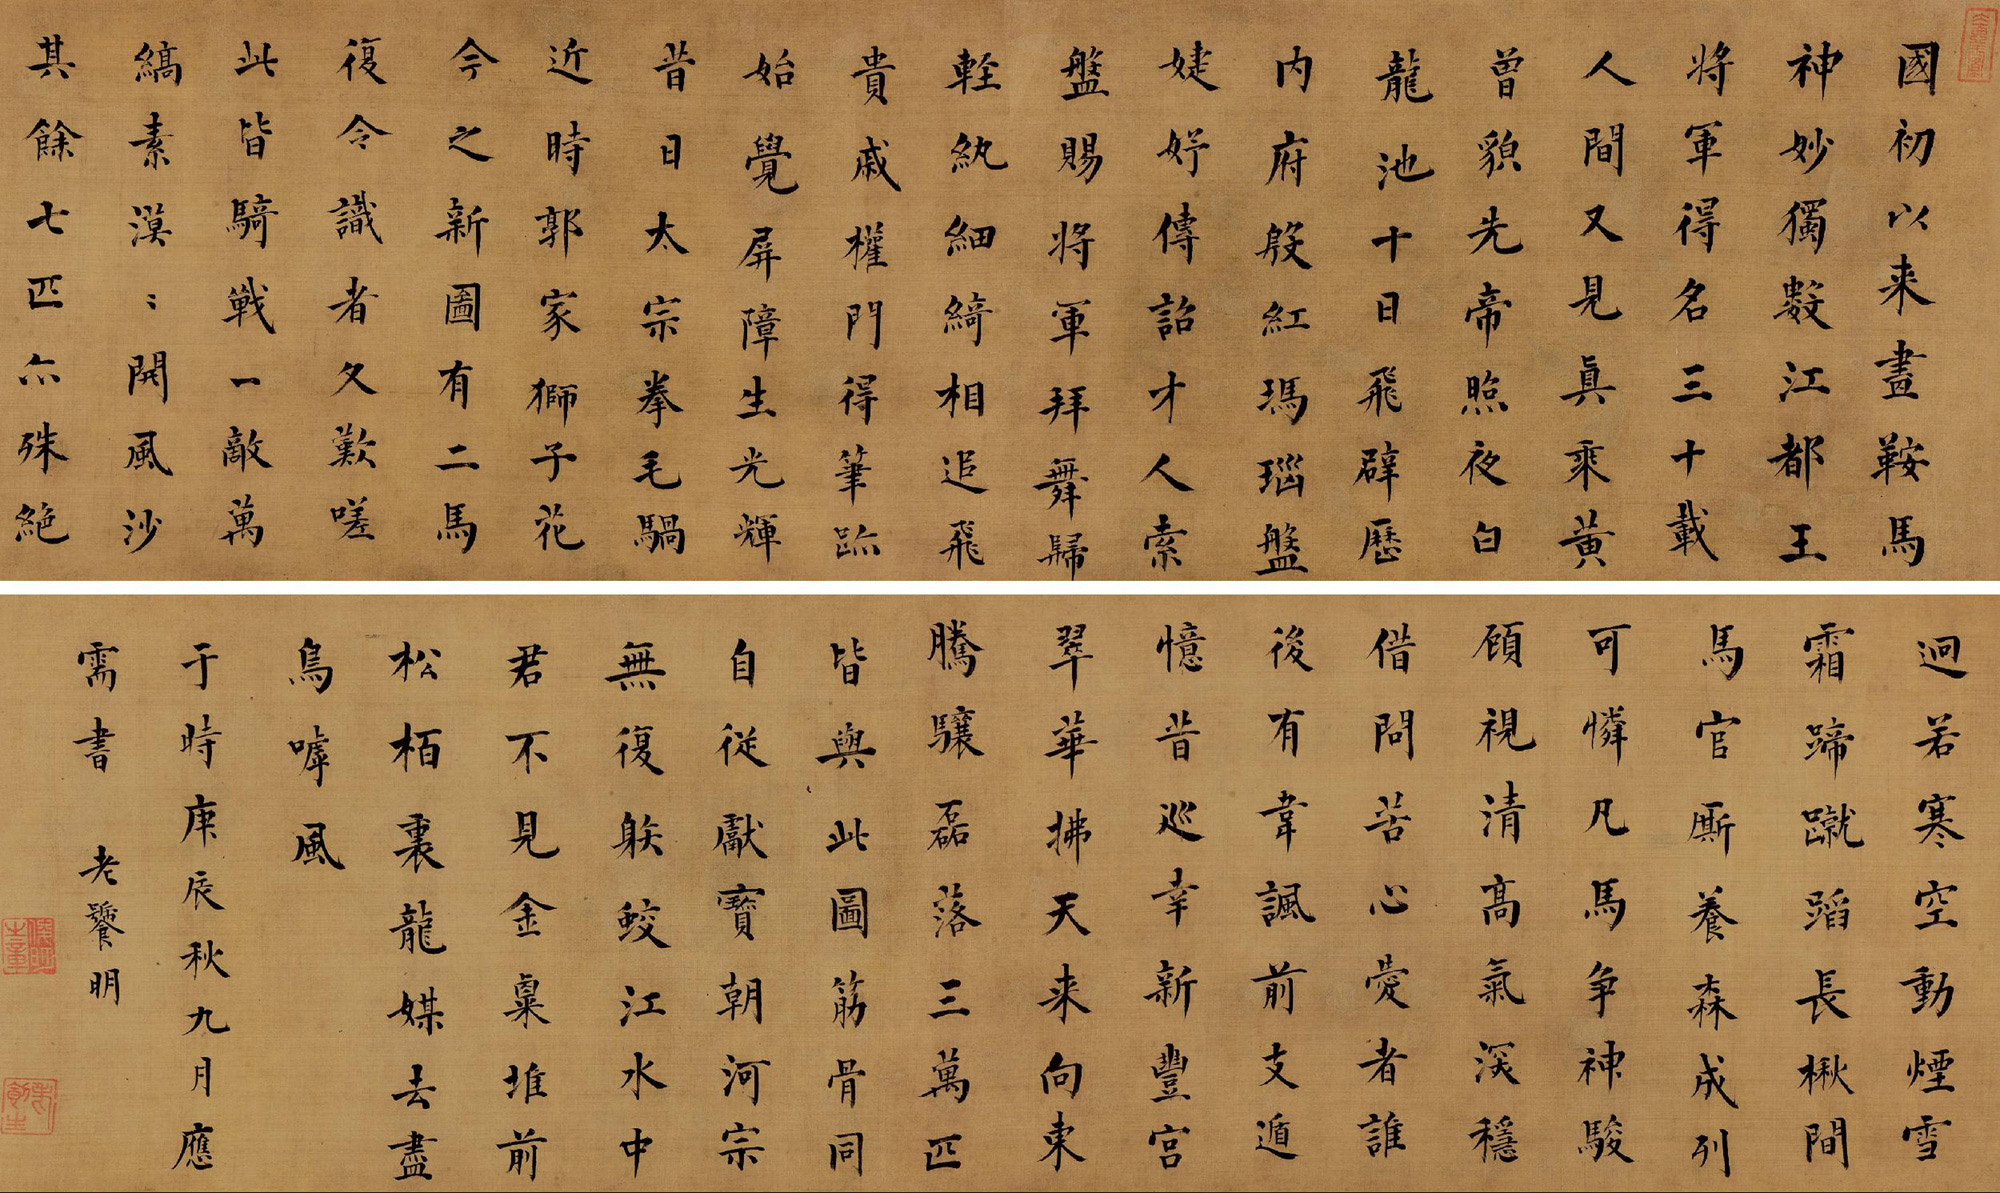 國初以来畫鞍馬
神妙獨數江都王
將軍得名三十載
人間又見真乘黃
曾貌先帝照夜白
龍池十日飛霹歷
内府殷紅瑪瑙盤
婕妤傳詔才人索
盤賜將軍拜舞歸
輕紈細綺相追飛
貴戚權門得筆跡
始覺屏障生光輝
昔日太宗拳毛騧
近時郭家獅子花
今之新圖有二馬
復令識者久歎嗟
此皆騎戰一敵萬
縞素漠〻開風沙
其餘七匹亦殊絕
迥若寒空動煙雪
霜蹄蹴蹈長楸間
馬官廝養森成列
可憐九馬爭神駿
顧視清高氣深穩
借問苦心愛者誰
後有韋諷前支遁
憶昔巡幸新豐宮
翠華拂天来向東
騰驤磊落三萬匹
皆與此圖筋骨同
自從獻寶朝河宗
無復䠶蛟江水中
君不見金粟堆前
松栢裏龍媒去盡
鳥嘑風
于時庚辰秋九月應
需書 老饕明